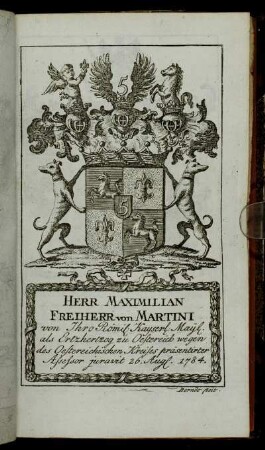 HERR MAXIMILIAN
FREIHERR von MARTINI
von Ihro Römis. Kayserl. Mayt.
als Ertzhertzog zu Oestereich wegen
des Oestereichischen Kreises präsentirter
Assessor juravit 26. Aug. 1784.